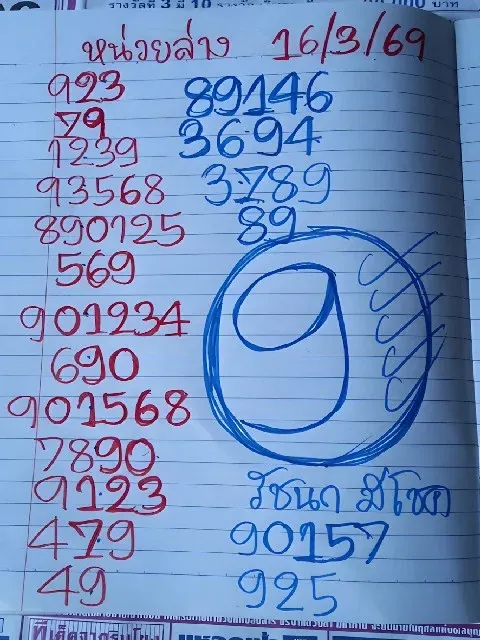 หน่วยล่าง 16/3/69
923
79
1239
93568
890125
569
901234
690
901568
7890
9123
479
49
89146
3694
3789
89
9
รัชนก มีโชค
90157
925